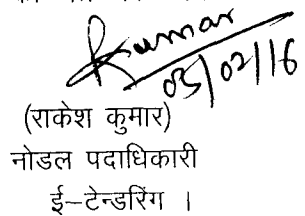 Kumar
03/02/16
(राकेश कुमार)
नोडल पदाधिकारी
ई-टेन्डरिंग ।